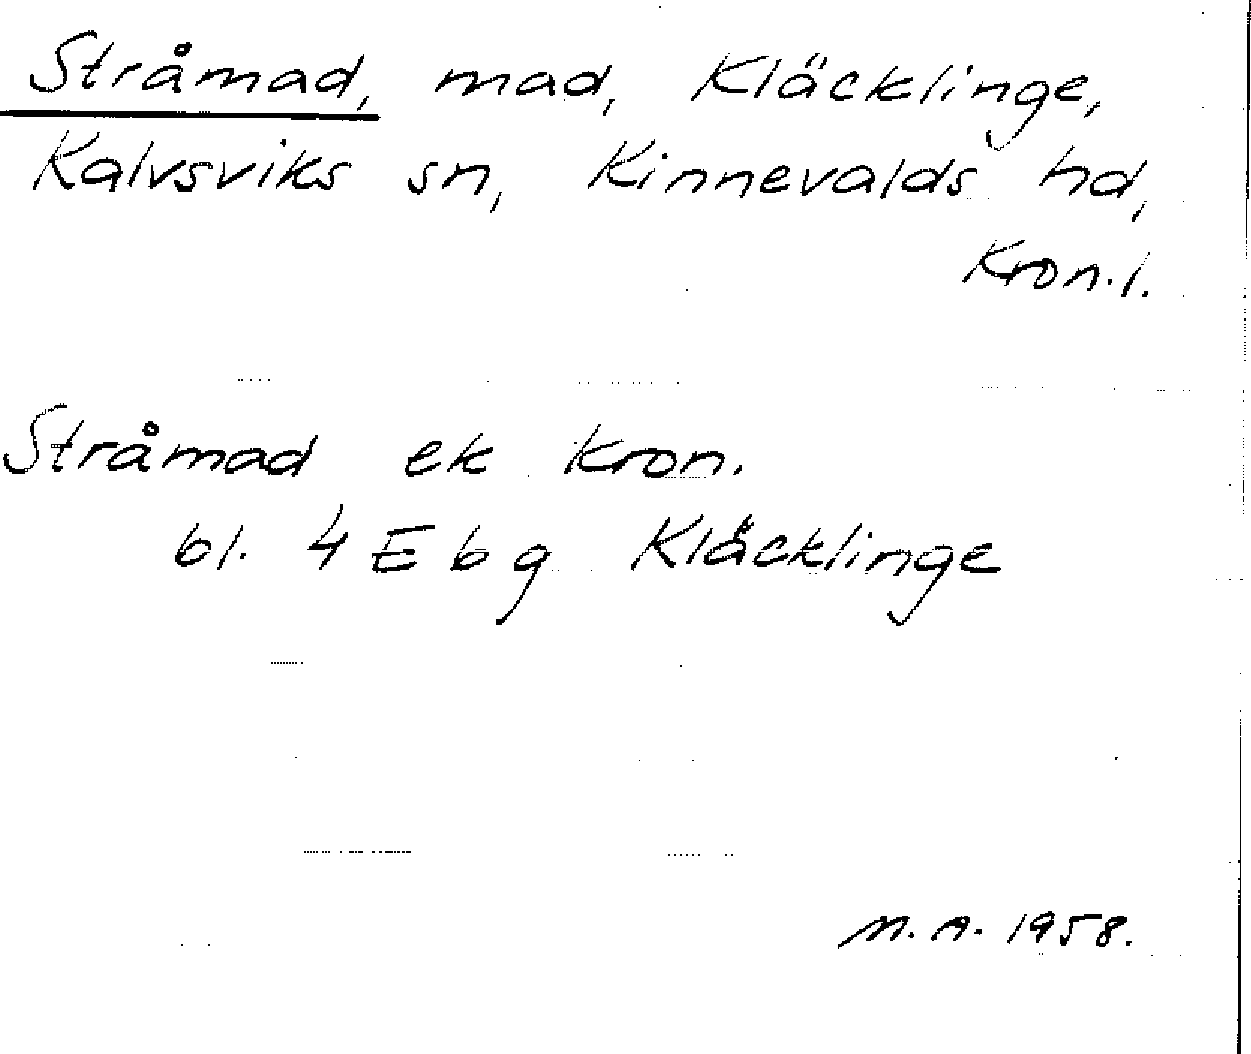 Stråmad, mad, Kläcklinge,
Kalvsviks sn, Kinnevalds hd,
Kron.l.
Stråmad ek kron.
bl. 4 E b g Kläcklinge
M.A. 1958.